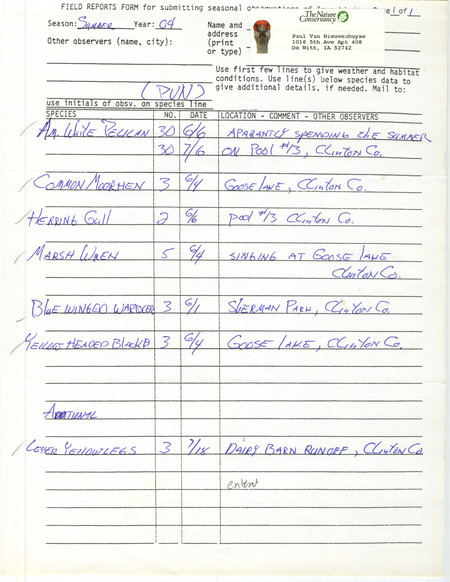 FIELD REPORTS FORM for submitting seasonal observations of
Page 1 of 1
Season: Summer Year: 04
Name and address (print or type)
The Nature Conservancy
Paul Van Nieuwenhuyse
1016 5th Ave Apt 408
De Witt, IA 52742
Other observers (name, city):
Use first few lines to give weather and habitat
conditions. Use line(s) below species data to
give additional details. if needed. Mail to:
(PVN)
use initials of obsv. on species line
SPECIES NO. DATE LOCATION - COMMENT - OTHER OBSERVERS
Am. White Pelican 30 6/6 APARANTLY SPENDING the SUMMER
30 7/6 ON POOL #13, CLINTON Co.
Common Moorhen 3 6/4 GOOSE LAKE, CLINTON Co.
Herring Gull 2 6/6 Pool #13 CLINTON Co.
Marsh Wren 5 6/4 SINGING AT GOOSE LAKE
CLINTON Co.
Blue Winged Warbler 3 6/1 SHERMAN PARK, CLINTON Co.
Yellow Headed Blackb. 3 6/4 GOOSE LAKE, CLINTON Co.
Additional
Lesser Yellowlegs 3 7/18 DAIRY BARN RUNOFF, CLINTON Co.
entered